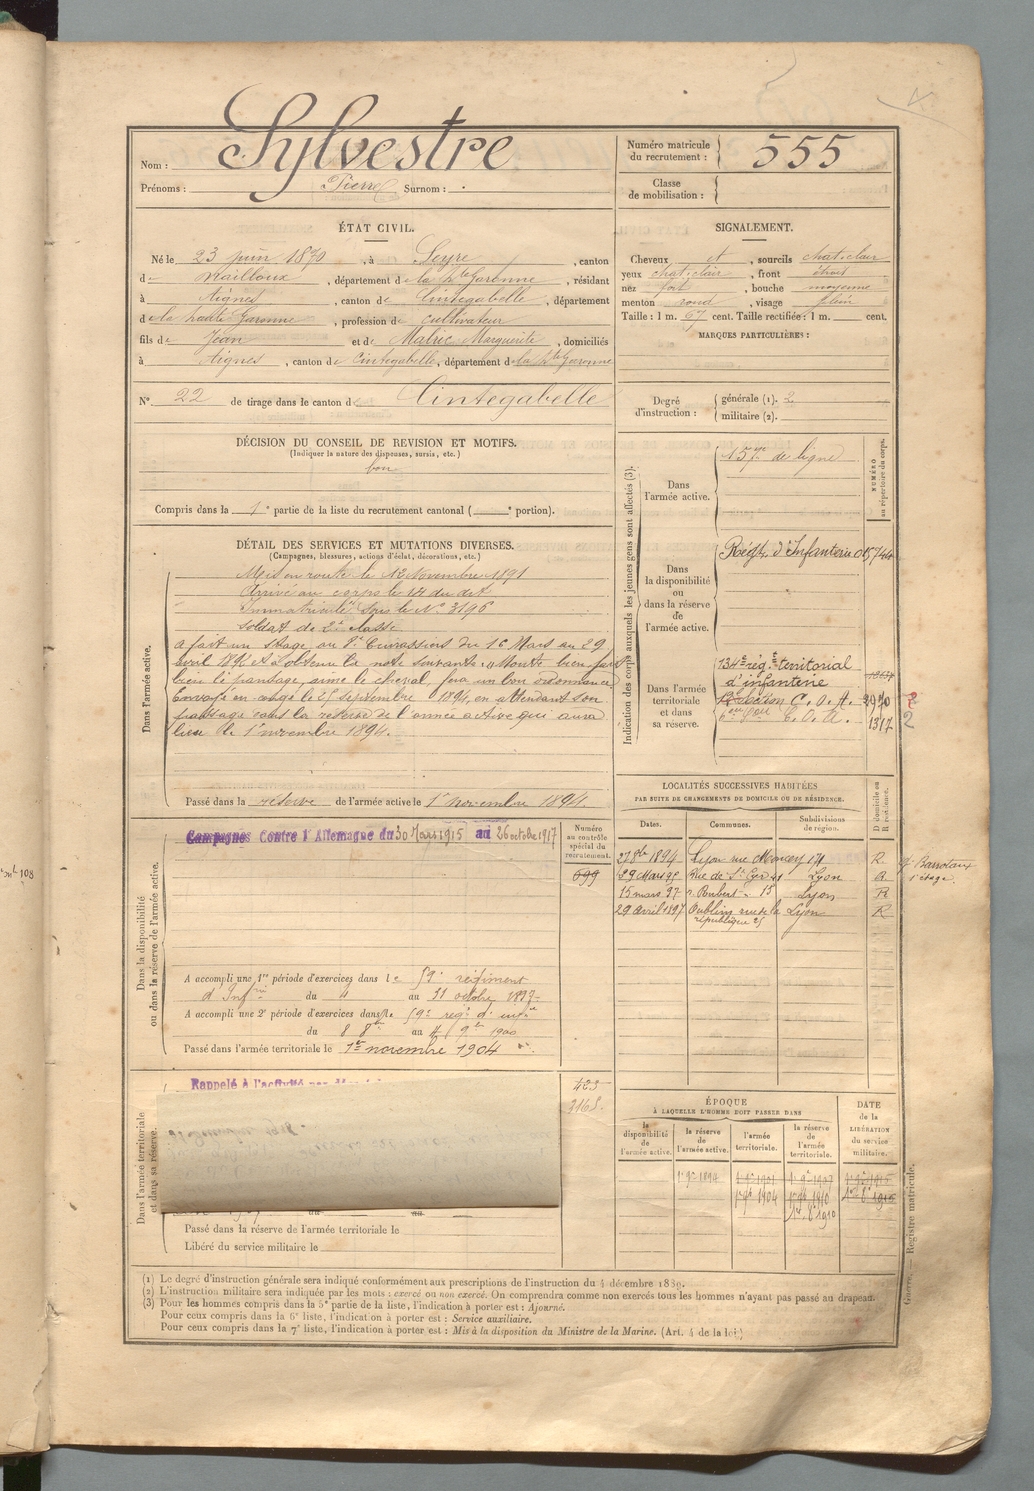 Nom : Sylvestre
Prénoms : Pierre Surnom : .
Numéro matricule du recrutement : 555
Classe de mobilisation :
ÉTAT CIVIL.
Né le 23 juin 1870, à Seyre, canton
de Nailloux, département de la Hte Garonne, résidant
à Aignes, canton de Cintegabelle, département
de la haute Garonne, profession de cultivateur
fils de Jean et de Matric Marguerite, domiciliés
à Aignes, canton de Cintegabelle, département de la Hte Garonne
N° 22 de tirage dans le canton de Cintegabelle
SIGNALEMENT.
Cheveux et, sourcils chat-clair
yeux chat-clair, front étroit
nez fort, bouche moyenne
menton rond, visage plein
Taille : 1 m. 67 cent. Taille rectifiée : 1 m. cent.
MARQUES PARTICULIÈRES :
Degré d'instruction : générale (1). 2
militaire (2).
DÉCISION DU CONSEIL DE REVISION ET MOTIFS.
(Indiquer la nature des dispenses, sursis, etc.)
bon
Compris dans la 1e partie de la liste du recrutement cantonal ( e portion).
DÉTAIL DES SERVICES ET MUTATIONS DIVERSES.
(Campagnes, blessures, actions d'éclat, décorations, etc.)
Dans l'armée active.
Mis en route le 12 Novembre 1891
Arrivé au corps le 14 du dit
Immatriculé sous le N° 3196
soldat de 2e classe
a fait un stage au Cuirassiers du 16 Mars au 29
avril 189 et a obtenu la note suivante : Monte bien fait
bien le pansage, aime le cheval, fera un bon ordonnance
Envoyé en congé le 25 septembre 1894, en attendant son
passage dans la réserve de l'armée active qui aura
lieu le 1er novembre 1894.
Passé dans la réserve de l'armée active le 1er novembre 1894
Indication des corps auxquels les jeunes gens sont affectés (3).
NUMÉRO au répertoire du corps.
Dans l'armée active.
de ligne
Dans la disponibilité ou dans la réserve de l'armée active.
Régt d'Infanterie 05744
Dans l'armée territoriale et dans sa réserve.
134e rég. territorial
d'infanterie
Section C. O. A. 3970
C. O. A. 1317
2
LOCALITÉS SUCCESSIVES HABITÉES
PAR SUITE DE CHANGEMENTS DE DOMICILE OU DE RÉSIDENCE.
Dates. Communes. Subdivisions de région. D domicile ou R résidence.
27 8bre 1894 Lyon rue Moncey 171 R
29 Mars 95 Rue de St Cyr 41 Lyon R
15 mars 97 15 Lyon R
29 Avril 1897 Oullins rue de la république 25 Lyon R
Dans la disponibilité ou dans la réserve de l'armée active.
Campagnes Contre l'Allemagne du 30 Mars 1915 au 26 octobre 1917
Numéro au contrôle spécial du recrutement.
699
A accompli une 1re période d'exercices dans le 59e régiment
d'Infrie du 4 au 31 octobre 1897
A accompli une 2e période d'exercices dans le 59e régt d'infie
du 8 8bre au 4 9bre 1900
Passé dans l'armée territoriale le 1er novembre 1904
Dans l'armée territoriale et dans sa réserve.
Rappelé à l'activité
423
2165
Passé dans la réserve de l'armée territoriale le
Libéré du service militaire le
ÉPOQUE
À LAQUELLE L'HOMME DOIT PASSER DANS
la disponibilité de l'armée active. la réserve de l'armée active. l'armée territoriale. la réserve de l'armée territoriale.
DATE de la LIBÉRATION du service militaire.
1er 9bre 1894
1er 9bre 1904
Guerre. — Registre matricule.
(1) Le degré d'instruction générale sera indiqué conformément aux prescriptions de l'instruction du 4 décembre 1889.
(2) L'instruction militaire sera indiquée par les mots : exercé ou non exercé. On comprendra comme non exercés tous les hommes n'ayant pas passé au drapeau.
(3) Pour les hommes compris dans la 5e partie de la liste, l'indication à porter est : Ajourné.
Pour ceux compris dans la 6e liste, l'indication à porter est : Service auxiliaire.
Pour ceux compris dans la 7e liste, l'indication à porter est : Mis à la disposition du Ministre de la Marine. (Art. 4 de la loi)